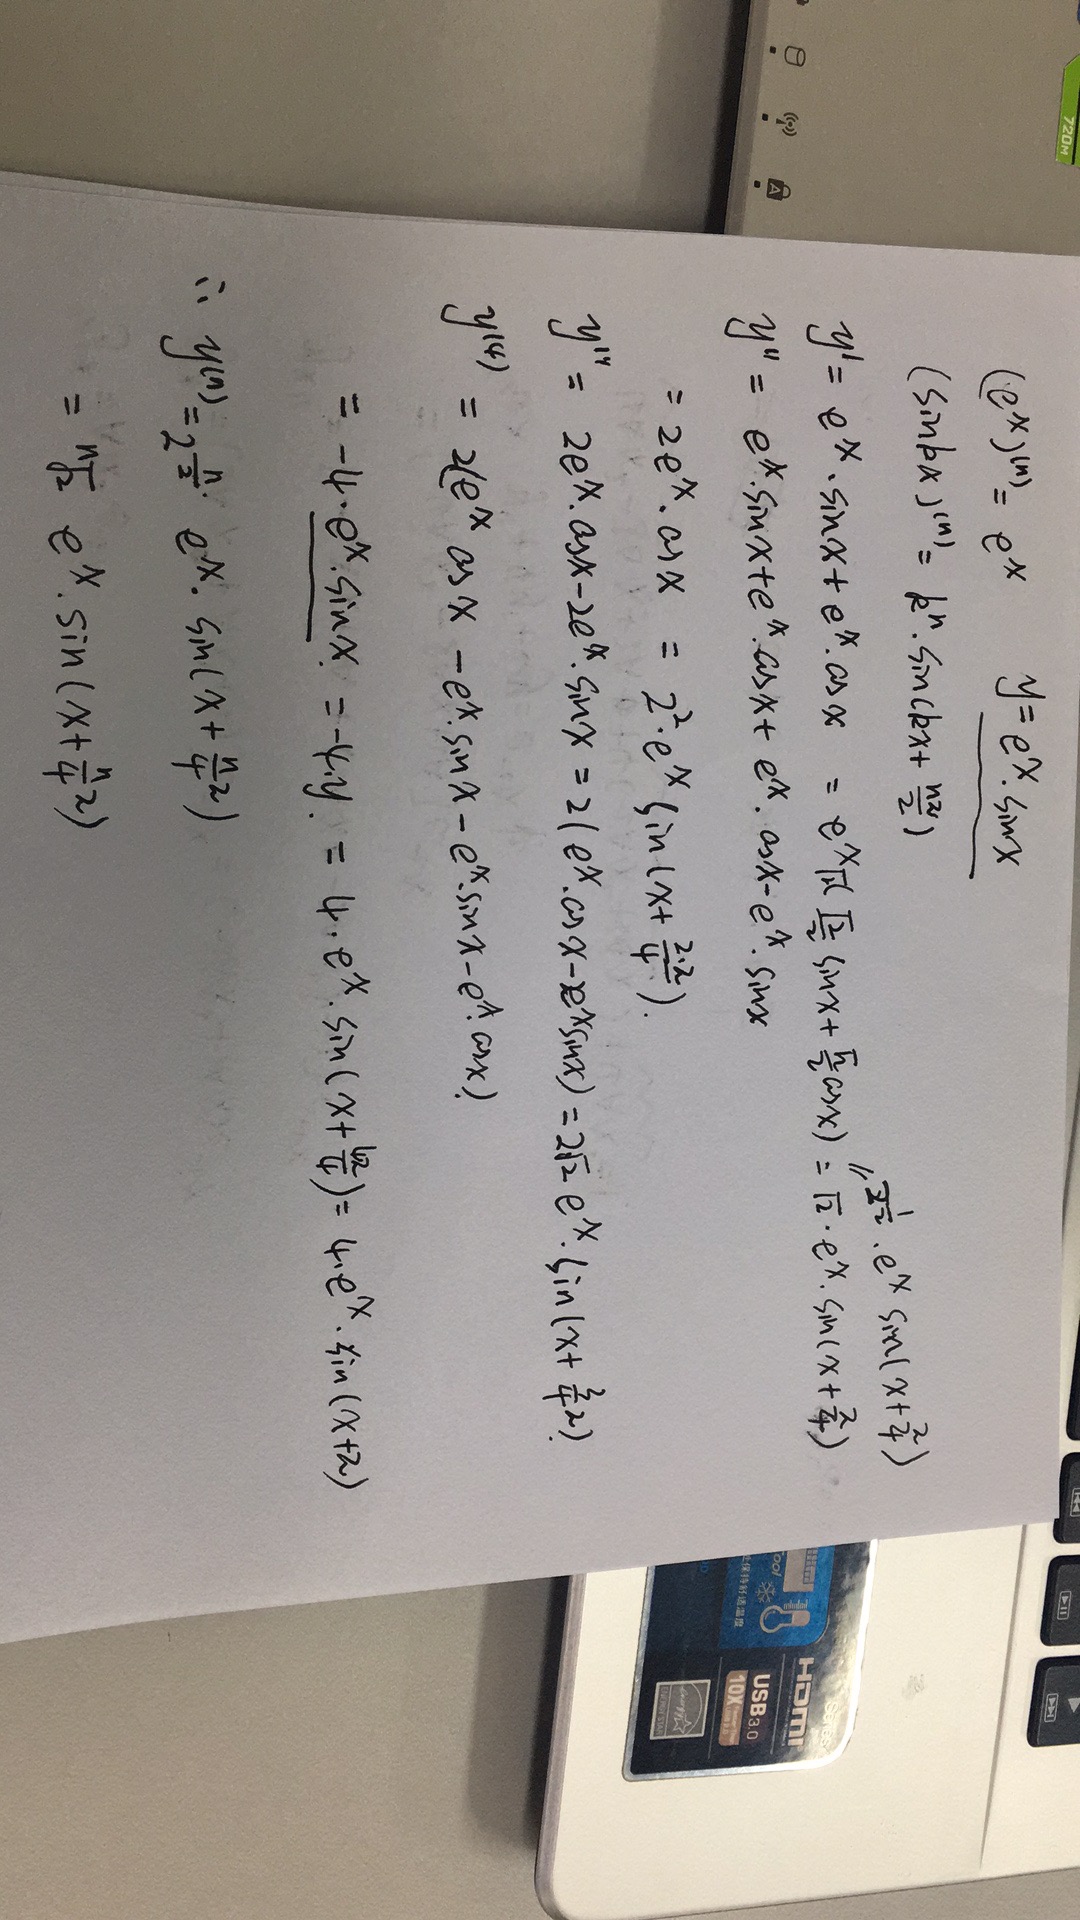 (eˣ)⁽ⁿ⁾ = eˣ y = eˣ·sinx
(sinkx)⁽ⁿ⁾ = kⁿ·sin(kx+nπ/2)
2^(1/2)·eˣ sin(x+π/4)
y' = eˣ·sinx+eˣ·cosx = eˣ√2(√2/2 sinx+√2/2 cosx) = √2·eˣ·sin(x+π/4)
y'' = eˣ·sinx+eˣ·cosx+eˣ·cosx-eˣ·sinx
= 2eˣ·cosx = 2²·eˣ sin(x+2·π/4).
y''' = 2eˣ·cosx-2eˣ·sinx = 2(eˣ·cosx-eˣsinx) = 2√2 eˣ·sin(x+3/4π).
y⁽⁴⁾ = 2(eˣ cosx-eˣ·sinx-eˣ·sinx-eˣ·cosx)
= -4·eˣ·sinx = -4·y. = 4·eˣ·sin(x+4π/4) = 4·eˣ·sin(x+π)
∴ y⁽ⁿ⁾ = 2^(n/2)·eˣ·sin(x+n/4π)
= ⁿ√2 eˣ·sin(x+n/4π)
720M
A
HDMI
USB 3.0
10X
ENERGY STAR